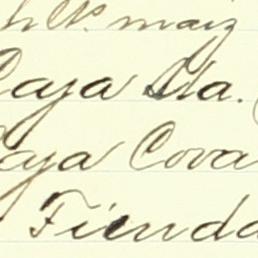 maiz
Caja Sta.
Caja Cova
Tienda